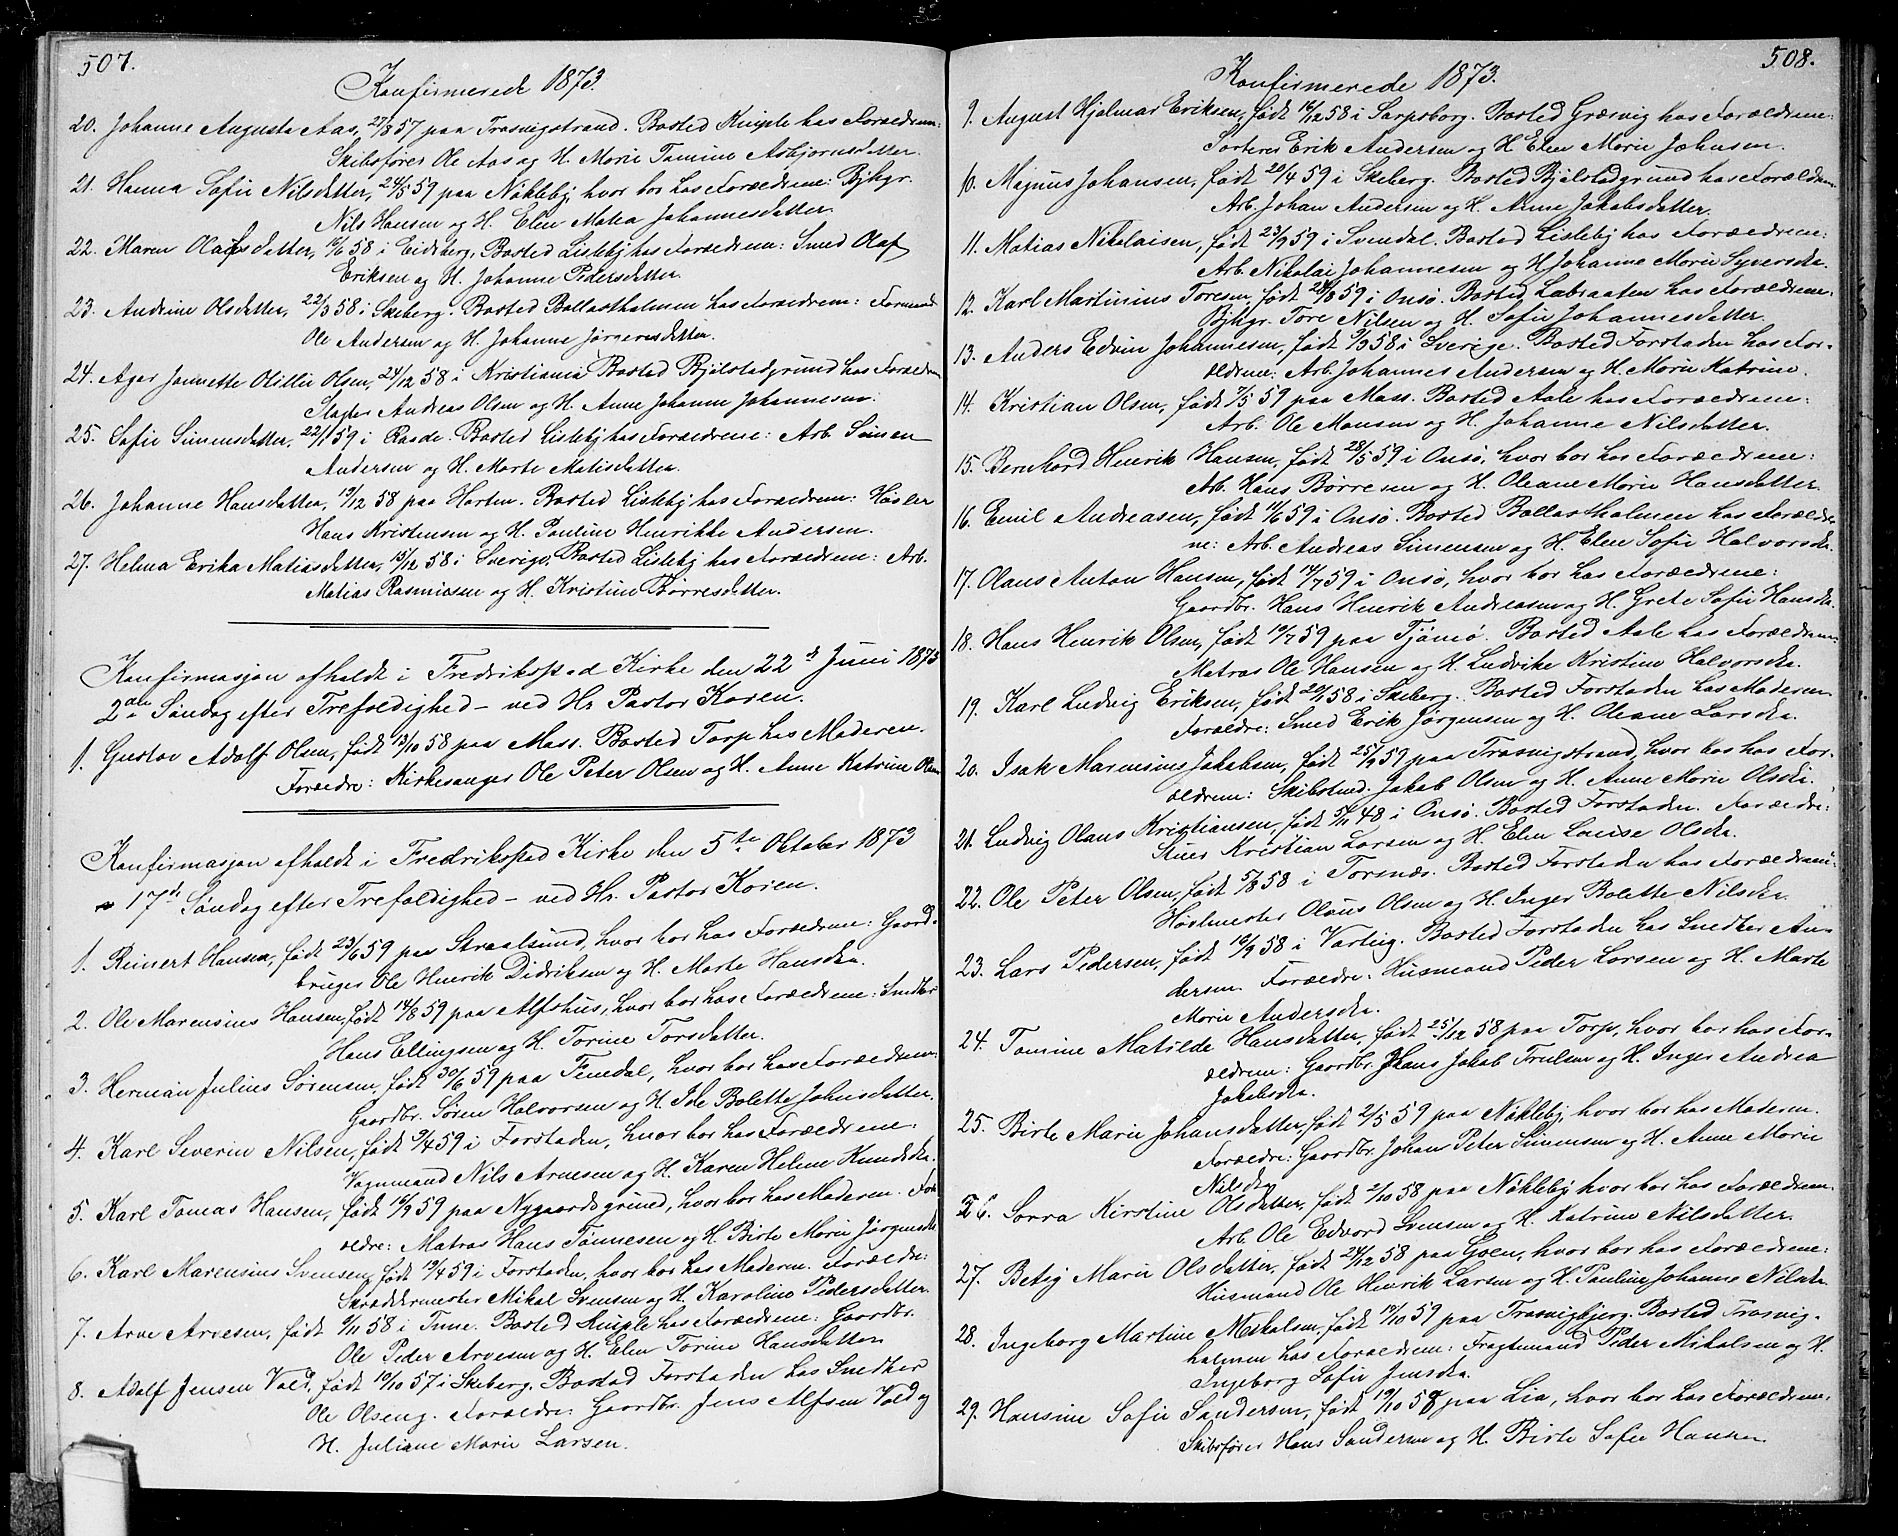 507.
Konfirmerede 1873.
20. Johanne Augusta Aas, 27/8 57 paa Trosvigstrand. Bosted Kniple hos Forældrene:
Skibsfører Ole Aas og H. Marie Tomine Asbjørnsdatter.
21. Hanna Sofie Nilsdatter, 24/5 59 paa Nøkleby, hvor bor hos Forældrene: Bjhgr.
Nils Hansen og H. Elen Matea Johannesdatter.
22. Maren Olausdatter, 10/6 58 i Eidsberg, Bosted Lisleby hos Forældrene: Smed Olaf
Eriksen og H. Johanne Pedersdatter.
23. Andrine Olsdatter, 22/3 58 i Skeberg. Bosted Ballastholmen hos Forældrene: Formand
Ole Andersen og H. Johanne Jørgensdatter.
24. Ager Jannette Otillie Olsen, 24/12 58 i Kristiania Bosted Bjølstadgrund hos Forældrene
Slagter Andreas Olsen og H. Anne Johanne Johannesen.
25. Sofie Simensdatter, 22/1 59 i Raade. Bosted Lisleby hos Forældrene: Arb. Simen
Andersen og H. Marte Matisdatter.
26. Johanne Hansdatter, 19/12 58 paa Horten. Bosted Lisleby hos Forældrene: Høvler
Hans Kristensen og H. Pauline Henrikke Andersen.
27. Helma Erika Matiasdatter, 15/12 58 i Sverige, Bosted Lisleby hos Forældrene: Arb.
Matias Rasmusen og H. Kristine Børresdatter.
Konfirmasjon afholdt i Fredrikstad Kirke den 22de Juni 1873
2den Søndag efter Trefoldighed - ved Hr. Pastor Koren.
1. Gustav Adolf Olsen, født 13/10 58 paa Moss. Bosted Torp hos Moderen.
Forældre: Kirkesanger Ole Peter Olsen og H. Anne Katrine Olsen
Konfirmasjon afholdt i Fredrikstad Kirke den 5te Oktober 1873
17de Søndag efter Trefoldighed - ved Hr. Pastor Koren.
1. Reinert Hansen, født 23/6 59 paa Straalsund, hvor bor hos Forældrene: Gaard-
bruger Ole Henrik Didriksen og H. Marte Hansdtr.
2. Ole Marensius Hansen, født 14/8 59 paa Alfshus, hvor bor hos Forældrene: Snedker
Hans Ellingsen og H. Torine Torsdatter.
3. Herman Julius Sørensen, født 30/6 59 paa Femdal, hvor bor hos Forældrene:
Gaardbr. Søren Halvorsen og H. Ide Bolette Johnsdatter.
4. Karl Severin Nilsen, født 9/4 59 i Forstaden, hvor bor hos Forældrene:
Vognmand Nils Arnesen og H. Karen Helene Knudsdtr.
5. Karl Tomas Hansen, født 10/9 59 paa Nygaardsgrund, hvor bor hos Moderen. For-
ældre: Matros Hans Tønnesen og H. Birte Marie Jørgensdtr
6. Karl Marensius Svensen, født 19/4 59 i Forstaden, hvor bor hos Moderen. Forældre:
Skræddermester Mikal Svensen og H. Karoline Pedersdatter.
7. Arne Arnesen, født 9/11 58 i Tune. Bosted Kniple hos Forældrene: Gaardbr.
Ole Peder Arnesen og H. Elen Torine Hansdatter
8. Adolf Jensen Vold, født 10/10 57 i Skeberg. Bosted Forstaden hos Snedker
Ole Olseng. Forældre: Gaardbr. Jens Alfsen Vold og
H. Juliane Marie Larsen.
508.
Konfirmerede 1873.
9. August Hjalmar Eriksen, født 16/12 58 i Sarpsborg. Bosted Græsvig hos Forældrene:
Sorterer Erik Andersen og H. Elen Marie Johnsen.
10. Magnus Johansen, født 20/4 59 i Skeberg. Bosted Bjølstadgrund hos Forældrene
Arb. Johan Andersen og H. Anne Jakobsdatter.
11. Matias Nikolaisen, født 23/9 59 i Svendal. Bosted Lisleby hos Forældrene:
Arb. Nikolai Johannesen og H. Johanne Marie Syversdtr.
12. Karl Martinius Toresen, født 28/8 59 i Onsø. Bosted Labraaten hos Forældrene:
Bjhgr. Tore Nilsen og H. Sofie Johannesdatter.
13. Anders Edvin Johannesen, født 9/9 58 i Sverige. Bosted Forstaden hos For-
ældrene: Arb. Johannes Andersen og H. Marie Katrine.
14. Kristian Olsen, født 7/5 59 paa Moss. Bosted Aale hos Forældrene:
Arb. Ole Monsen og H. Johanne Nilsdatter.
15. Bernhard Henrik Hansen, født 28/5 59 i Onsø, hvor bor hos Forældrene:
Arb. Hans Børresen og H. Oleane Marie Hansdatter.
16. Emil Andreasen, født 11/6 59 i Onsø. Bosted Ballastholmen hos Forældre-
ne: Arb. Andreas Simensen og H. Elen Sofie Halvorsdtr.
17. Olaus Anton Hansen, født 14/7 59 i Onsø, hvor bor hos Forældrene:
Gaardbr. Hans Henrik Andreasen og H. Grete Sofie Hansdtr.
18. Hans Henrik Olsen, født 10/7 59 paa Tjømø. Bosted Aale hos Forældrene
Matros Ole Hansen og H. Ludvike Kristine Halvorsdtr.
19. Karl Ludvig Eriksen, født 29/1 58 i Skeberg. Bosted Forstaden hos Moderen
Forældre: Smed Erik Jørgensen og H. Oleane Larsdtr.
20. Isak Marensius Jakobsen, født 25/9 59 paa Trosvigstrand, hvor bor hos For-
ældrene: Skibstmd. Jakob Olsen og H. Anne Marie Olsdtr.
21. Ludvig Olaus Kristiansen, født 5/11 48 i Onsø. Bosted Forstaden. Forældre:
Stuer Kristian Larsen og H. Elen Louise Olsdtr.
22. Ole Peter Olsen, født 5/8 58 i Torsnæs. Bosted Forstaden hos Forældrene:
Høvlmester Olaus Olsen og H. Inger Bolette Nilsdtr.
23. Lars Pedersen, født 10/9 58 i Varteig. Bosted Forstaden hos Snedker An-
dersen. Forældre: Husmand Peder Larsen og H. Marte
Marie Andersdtr.
24. Tomine Matilde Hansdatter, født 25/12 58 paa Torp, hvor bor hos For-
ældrene: Gaardbr. Hans Jakob Trulsen og H. Inger Andrea
Jakobsdtr.
25. Birte Marie Johansdatter, født 2/5 59 paa Nøkleby, hvor bor hos Moderen.
Forældre: Gaardbr. Johan Peter Simensen og H. Anne Marie
Nilsdtr
26. Sorra Kirstine Olsdatter, født 2/10 58 paa Nøkleby, hvor bor hos Forældrene
Arb. Ole Edvard Svensen og H. Katrine Nilsdatter.
27. Betsy Marie Olsdatter, født 24/12 58 paa Goen, hvor bor hos Forældrene:
Husmand Ole Henrik Larsen og H. Pauline Johanne Nilsdtr.
28. Ingeborg Martine Mikalsen, født 19/10 59 paa Trosvigbjerg. Bosted Trosvig-
holmen hos Forældrene: Fragtemand Peder Mikalsen og H.
Ingeborg Sofie Jensdtr.
29. Hansine Sofie Sandersen, født 19/10 58 paa Lia, hvor bor hos Forældrene,
Skibsfører Hans Sandersen og H. Birte Sofie Hansen